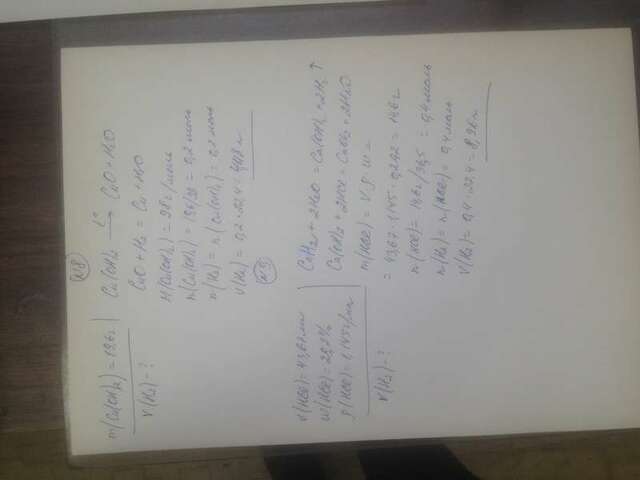 №8
m(Cu(OH)₂) = 19,6г
V(H₂) - ?
Cu(OH)₂ t°→ CuO + H₂O
CuO + H₂ = Cu + H₂O
M(Cu(OH)₂) = 98 г/моль
n(Cu(OH)₂) = 19,6/98 = 0,2 моль
n(H₂) = n(Cu(OH)₂) = 0,2 моль
V(H₂) = 0,2·22,4 = 4,48 л
№9
V(HCl) = 43,67 мл
W(HCl) = 29,2%
ρ(HCl) = 1,145 г/мл
V(H₂) - ?
CaH₂ + 2H₂O = Ca(OH)₂ + 2H₂ ↑
Ca(OH)₂ + 2HCl = CaCl₂ + 2H₂O
m(HCl) = V·ρ·W =
= 43,67·1,145·0,292 = 14,6г
n(HCl) = 14,6г/36,5 = 0,4 моль
n(H₂) = n(HCl) = 0,4 моль
V(H₂) = 0,4·22,4 = 8,96 л